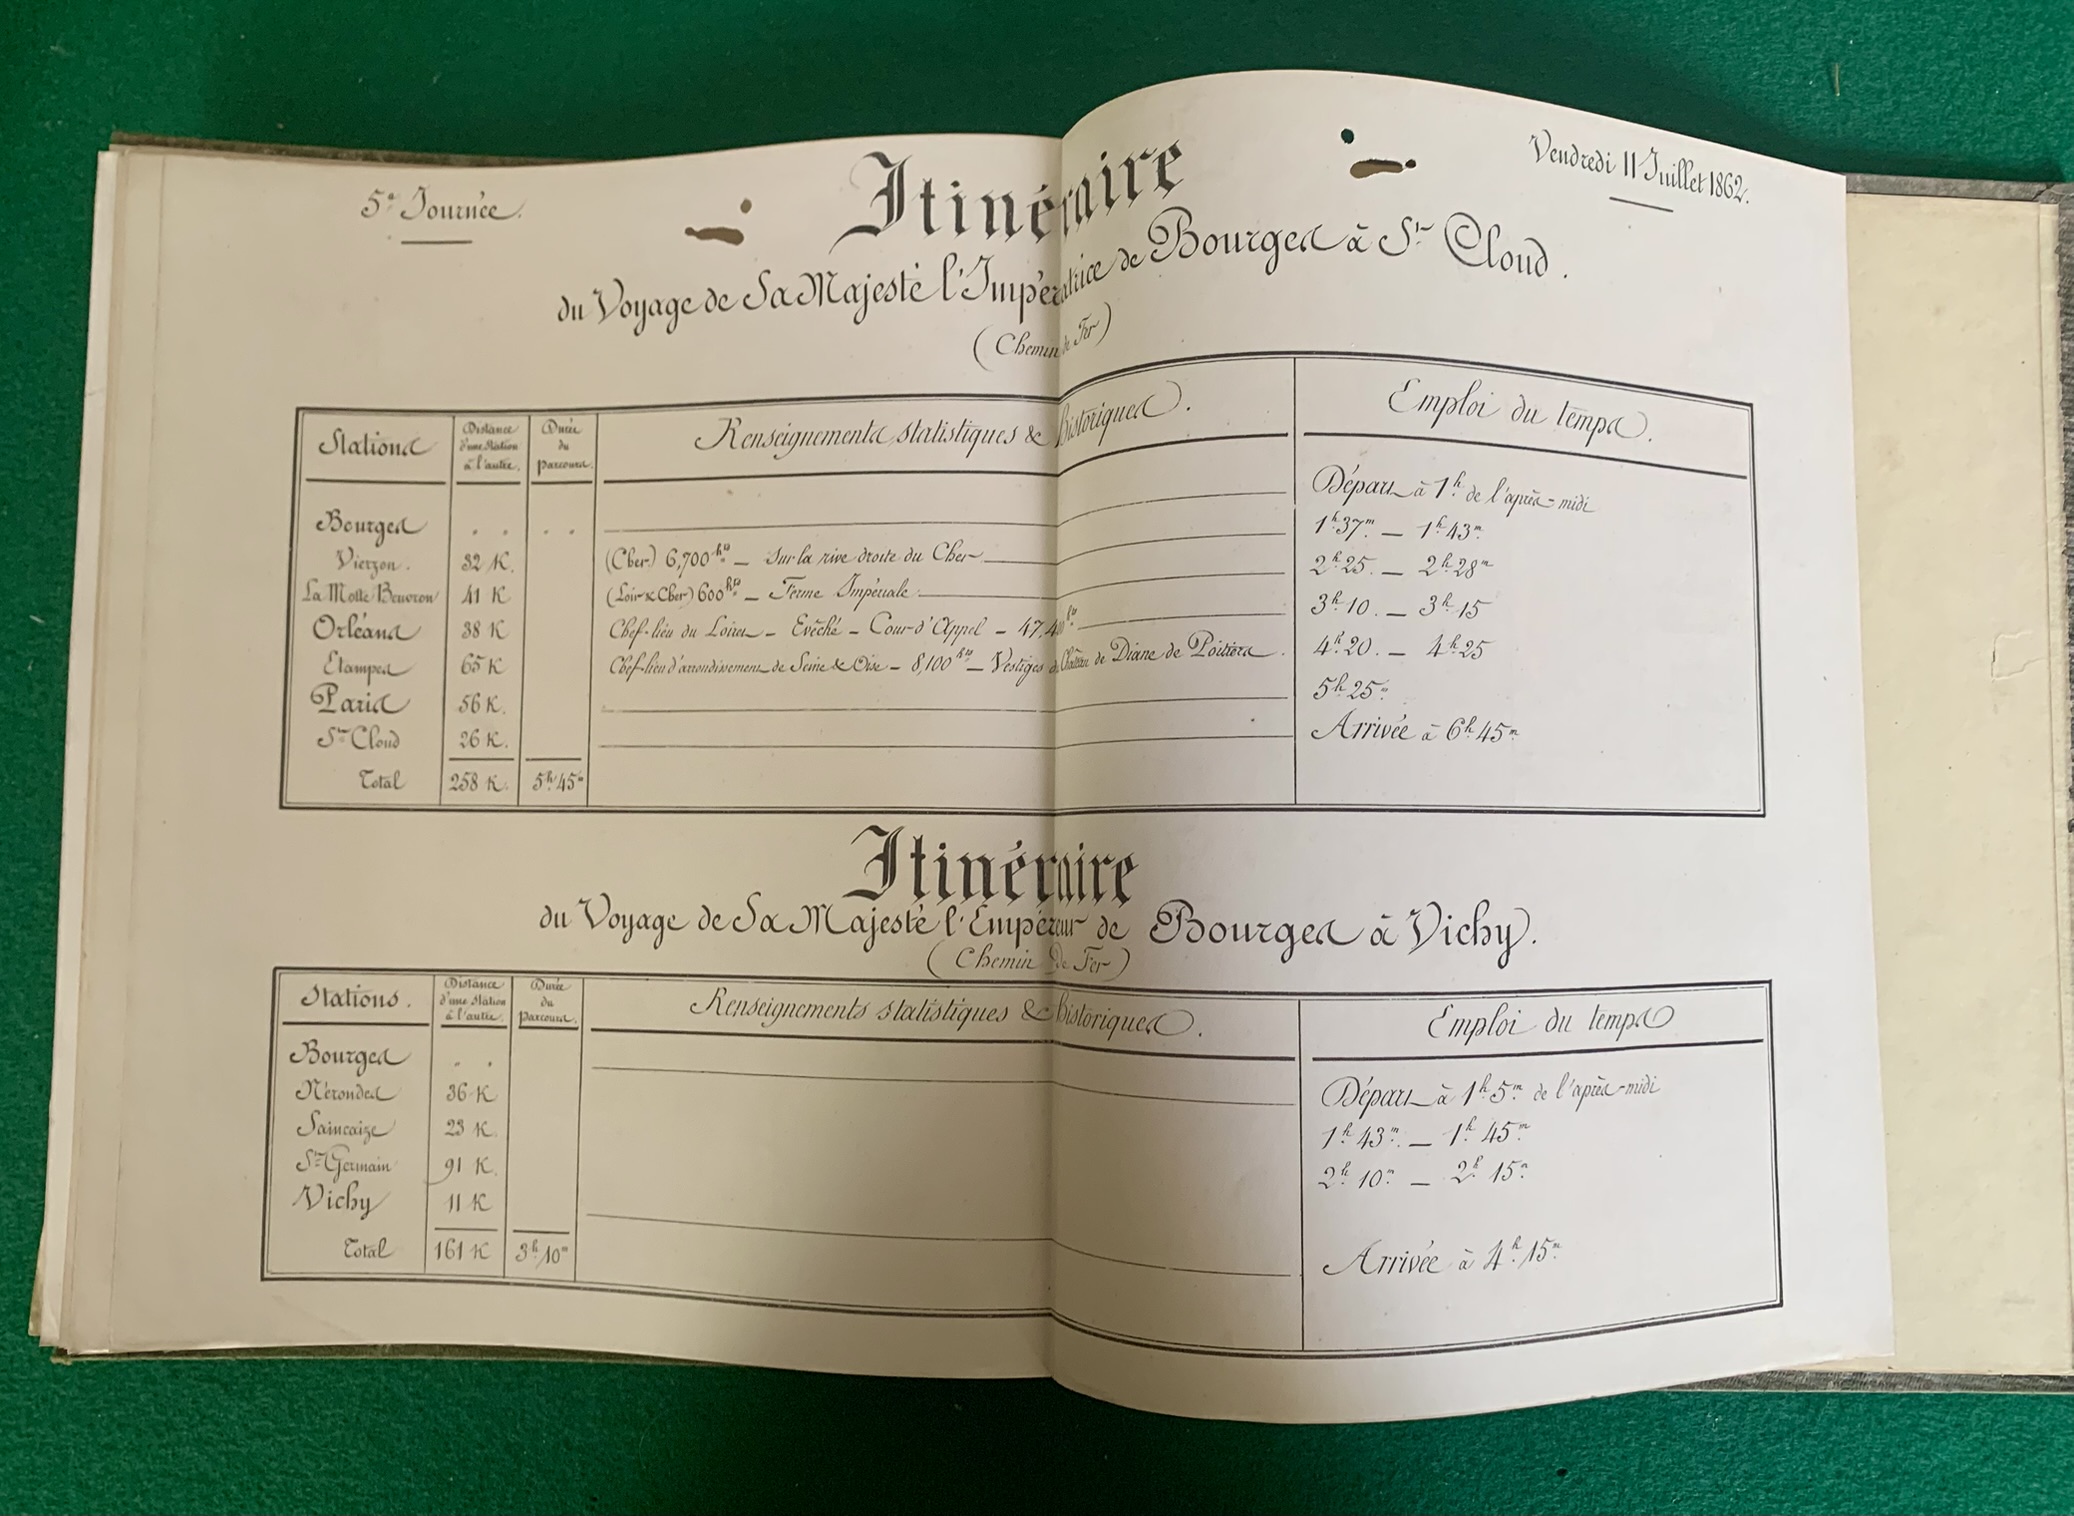 5e Journée.
Vendredi 11 Juillet 1862.
Itinéraire
du Voyage de Sa Majesté l'Impératrice de Bourges à St Cloud.
(Chemin de Fer)
Stations Distance d'une Station à l'autre. Durée du parcours. Renseignements statistiques & historiques. Emploi du temps.
Bourges " " " " Départ à 1h de l'après-midi
Vierzon. 32 K. (Cher) 6,700 hts — Sur la rive droite du Cher 1h 37m — 1h 43m
La Motte Beuvron 41 K (Loir & Cher) 600 hts — Ferme Impériale 2h 25. — 2h 28m
Orléans 38 K Chef-lieu du Loiret — Evêché — Cour d'Appel — hts 3h 10. — 3h 15
Etampes 65 K Chef-lieu d'arrondissement de Seine & Oise — 8,100 hts — Vestiges du Château de Diane de Poitiers. 4h 20. — 4h 25
Paris 56 K. 5h 25m
St Cloud 26 K. Arrivée à 6h 45m
Total 258 K. 5h 45m
Itinéraire
du Voyage de Sa Majesté l'Empereur de Bourges à Vichy.
(Chemin de Fer)
Stations. Distance d'une Station à l'autre. Durée du parcours. Renseignements statistiques & historiques. Emploi du temps
Bourges " " Départ à 1h 5m de l'après-midi
Nérondes 36 K 1h 43m — 1h 45m
Saincaize 23 K. 2h 10m — 2h 15m
St Germain 91 K.
Vichy 11 K Arrivée à 4h 15m
Total 161 K 3h 10m